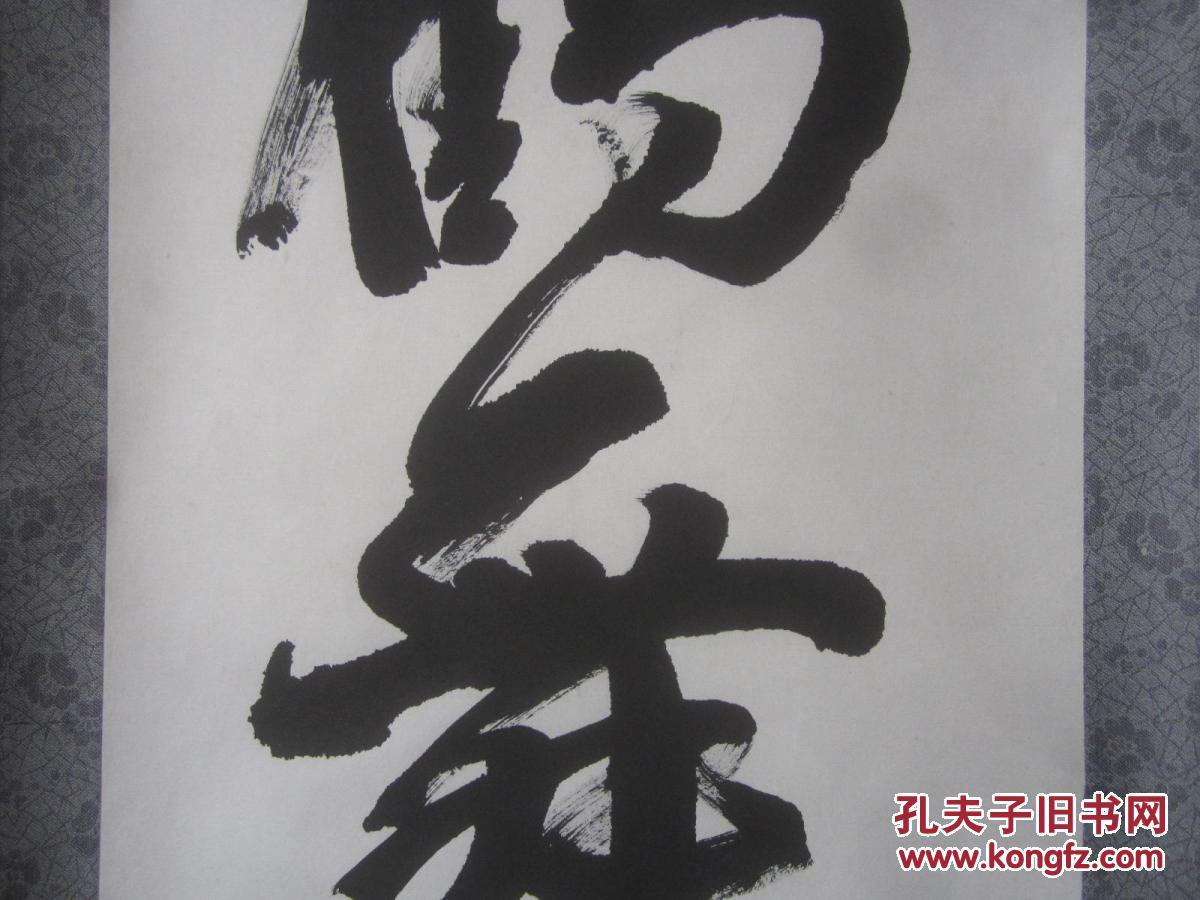 鶴
舞
孔夫子旧书网
www.kongfz.com